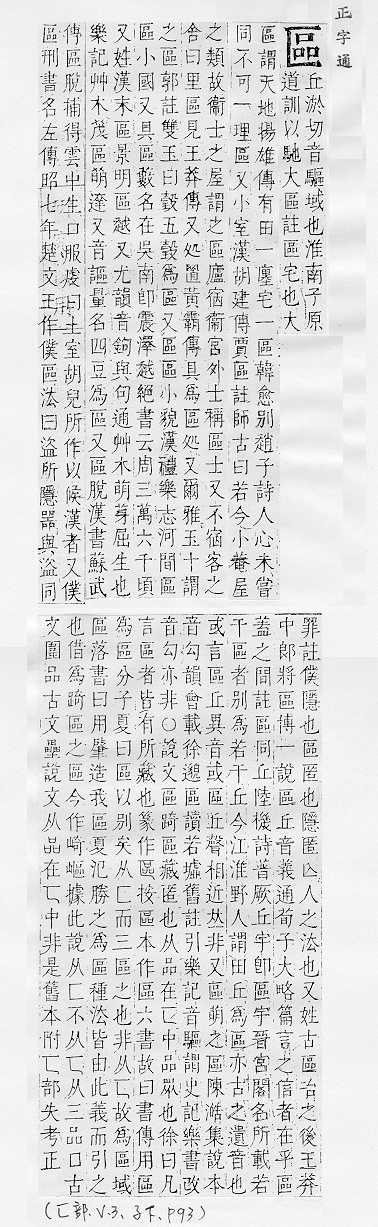 正字通
區
丘淤切音驅域也淮南子原
道訓以馳大區註區宅也大
區謂天地揚雄傳有田一廛宅一區韓愈別趙子詩人心未嘗
同不可一理區又小室漢胡建傳賈區註師古曰若今小菴屋
之類故衞士之屋謂之區廬宿衞宮外士稱區士又不宿客之
舍曰里區見王莽傳又処置黃霸傳具為區処又爾雅玉十謂
之區郭註雙玉曰瑴五瑴為區又區區小貌漢禮樂志河間區
區小國又具區藪名在吳南卽震澤越絕書云周三萬六千頃
又姓漢末區景明區越又尤韻音鉤與句通艸木萌芽屈生也
樂記艸木茂區萌達又音謳量名四豆為區又區脫漢書蘇武
傳區脫捕得雲中生口服虔曰土室胡兒所作以候漢者又僕
區刑書名左傳昭七年楚文王作僕區法曰盜所隱器與盜同
罪註僕隱也區匿也隱匿亾人之法也又姓古區冶之後王莽
中郎將區傳一說區丘音義通荀子大略篇言之信者在乎區
蓋之間註區同丘陸機詩普厥丘宇卽區宇晉宮閣名所載若
干區者別為若干丘今江淮野人謂田丘為區亦古之遺音也
或言區丘異音或區丘聲相近𠀤非又區萌之區陳澔集說本
音勾韻會載徐邈區讀若墟舊註引樂記音驅謂史記樂書改
音勾亦非○說文區踦區藏匿也从品在匸中品眾也徐曰凡
言區者皆有所藏也篆作區按區本作區六書故曰書傳用區
為區分子夏曰區以別矣从匚而三區之也非从匸故為區域
區落書曰用肇造我區夏氾勝之為區種法皆由此義而引之
也借為踦區之區今作崎嶇據此說从匚不从匸从三品口古
文圍品古文疊說文从品在匸中非是舊本附匸部失考正
(匸部.V.3、子下、P93)